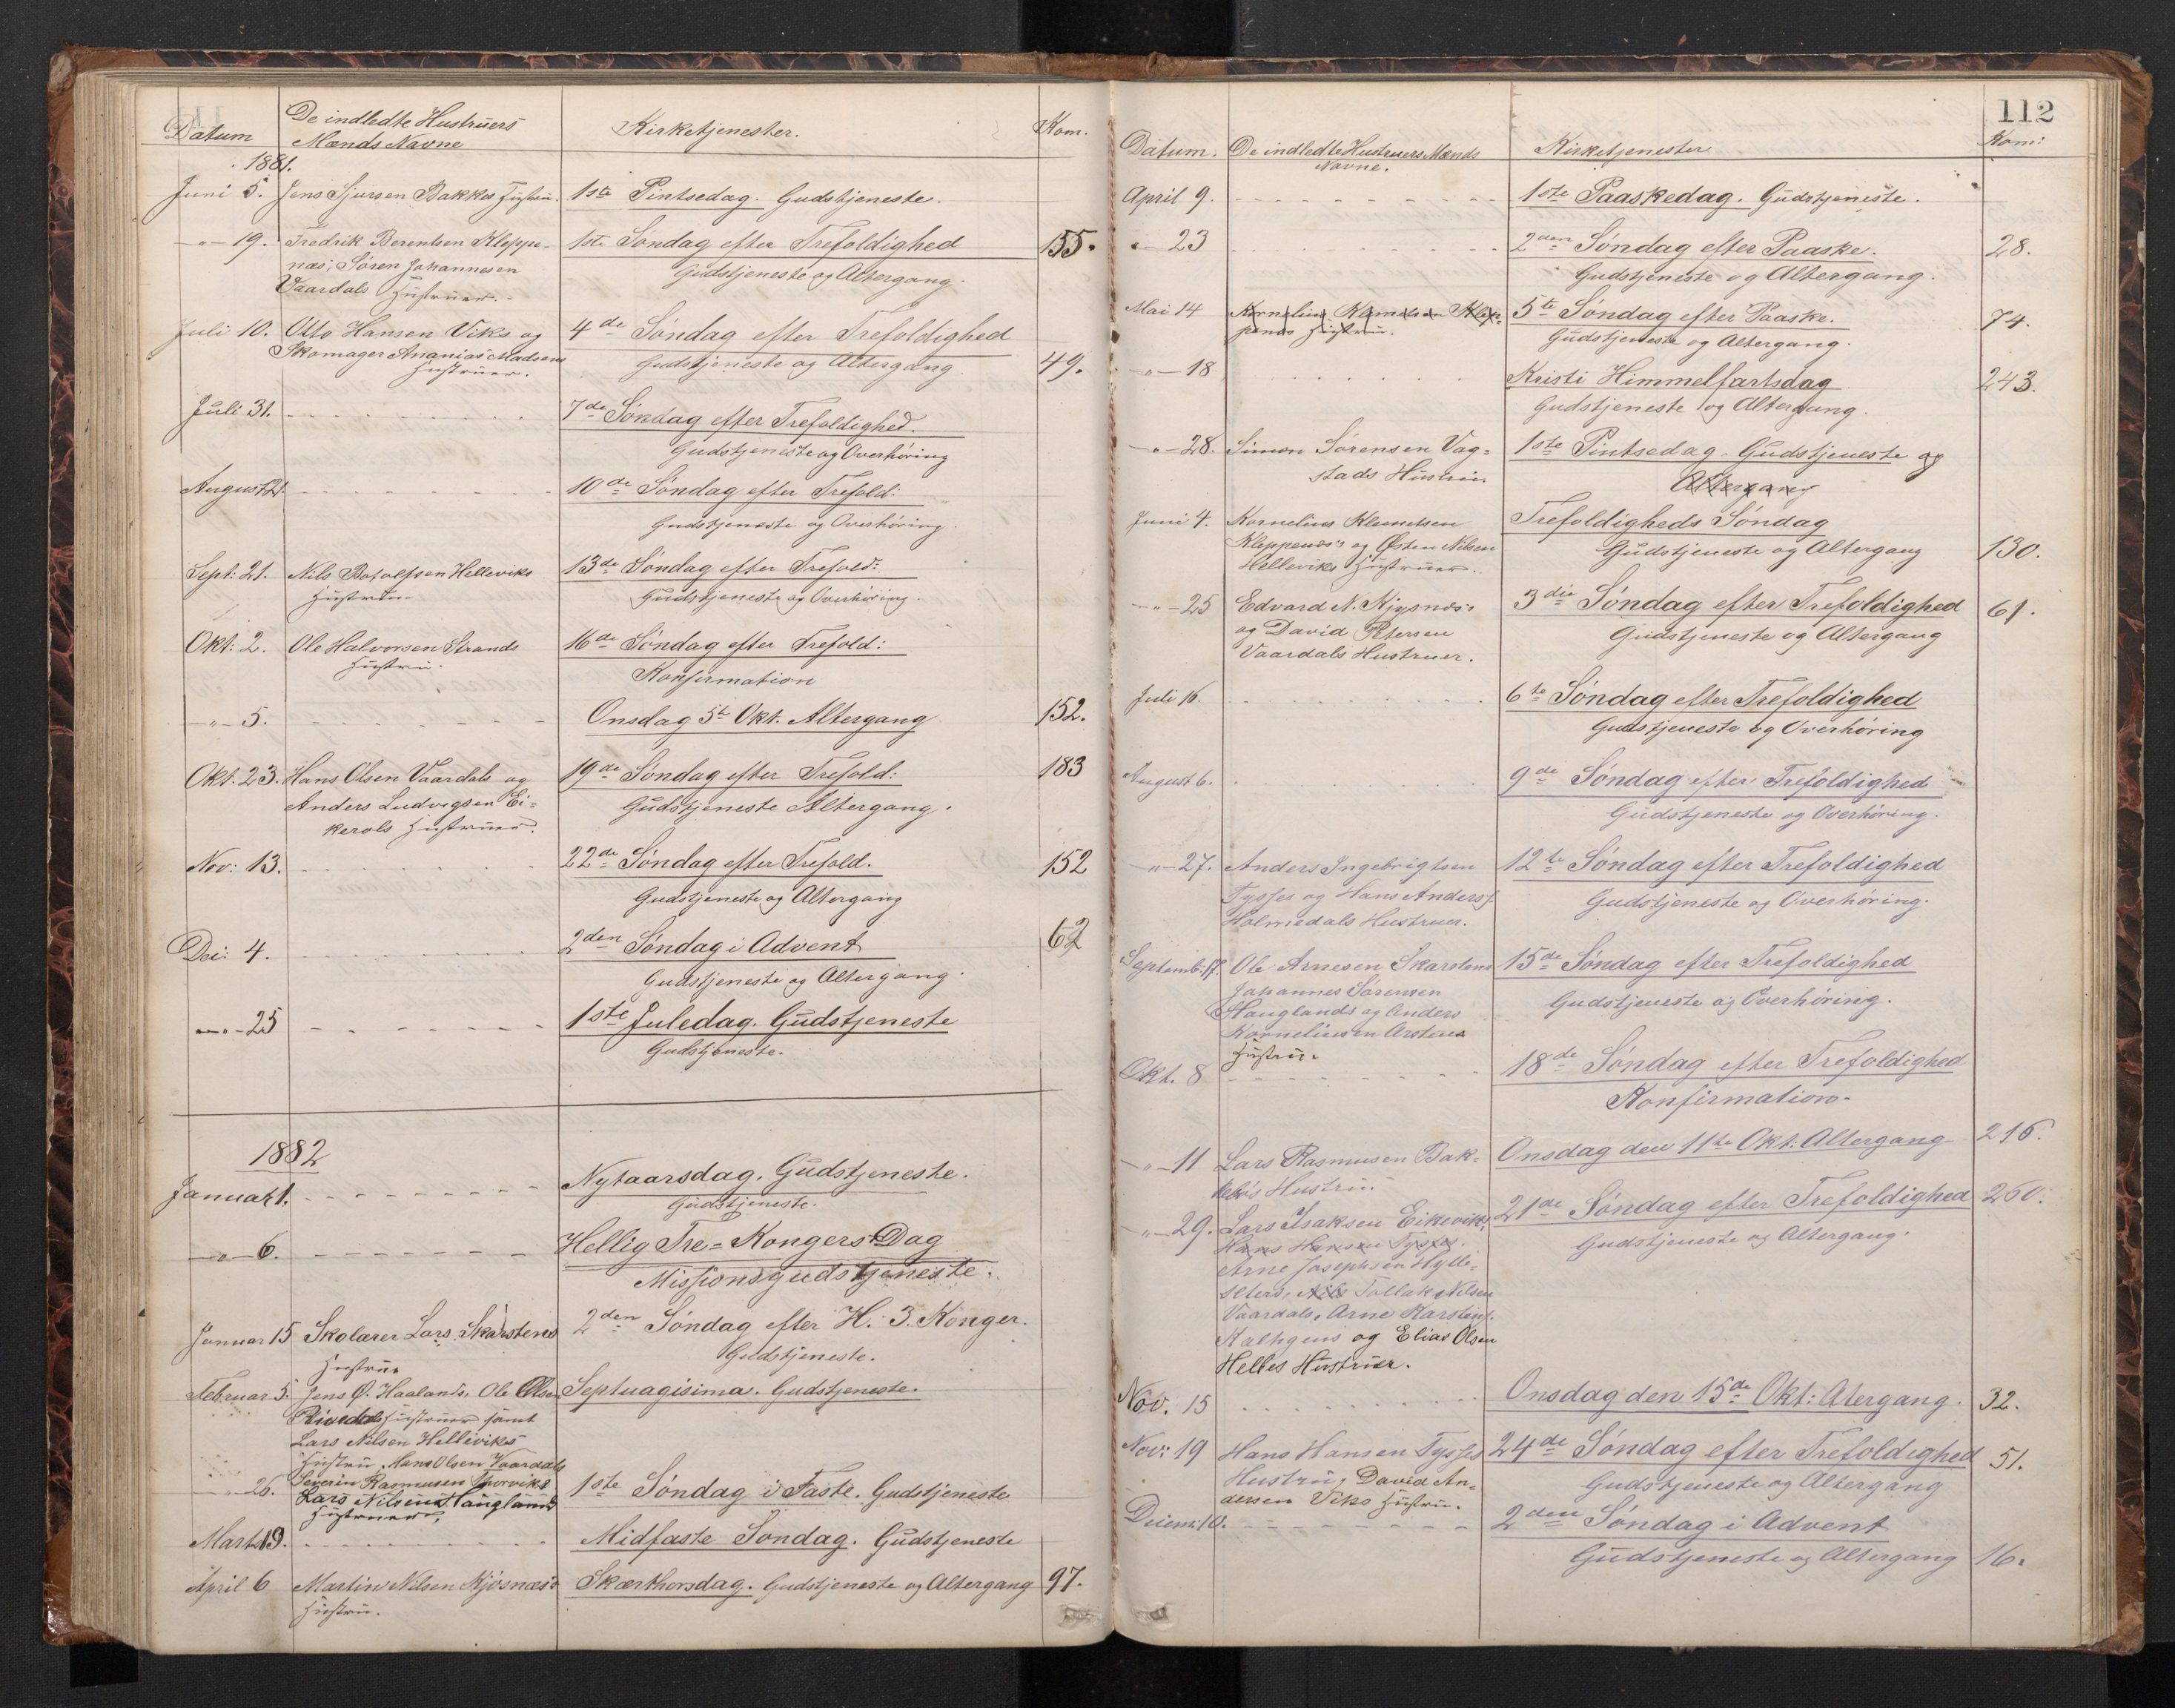 Datum
De indledte Hustruers
Mænds Navne
Kirketjenester.
Kom.
1881.
Juni 5. Jens Sjursen Bakkes Hustru. 1ste Pintsedag. Gudstjeneste.
-"- 19. Fredrik Berentsen Kleppe- 1ste Søndag efter Trefoldighed 155.
næs, Søren Johannesen Gudstjeneste og Altergang.
Vaardals Hustruer.
Juli 10. Otto Hansen Viks og 4de Søndag efter Trefoldighed
Skomager Ananias Madsens Gudstjeneste og Altergang 49.
Hustruer.
Juli 31. 7de Søndag efter Trefoldighed.
Gudstjeneste og Overhøring
August 21. 10de Søndag efter Trefold:
Gudstjeneste og Overhøring.
Sept: 21. Nils Botolfsen Helleviks 13de Søndag efter Trefold:
Hustru Gudstjeneste og Overhøring.
Okt: 2. Ole Halvorsen Strands 16de Søndag efter Trefold:
Hustru. Konfirmation
-"- 5. Onsdag 5te Okt. Altergang 152.
Okt. 23. Hans Olsen Vaardals og 19de Søndag efter Trefold: 183
Anders Ludvigsen Ei= Gudstjeneste Altergang.
kerols Hustruer.
Nov: 13. 22de Søndag efter Trefold. 152
Gudstjeneste og Altergang
Dec: 4. 2den Søndag i Advent 62
Gudstjeneste og Altergang.
-"- 25 1ste Juledag. Gudstjeneste
Gudstjeneste.
1882
Januar 1. Nytaarsdag. Gudstjeneste.
Gudstjeneste.
-"- 6. Hellig Tre=Kongers Dag
Missionsgudstjeneste.
Januar 15 Skolærer Lars Skarstens 2den Søndag efter H. 3. Konger.
Hustru Gudstjeneste.
Februar 5. Jens Ø. Haalands, Ole Olsen Septuagisima. Gudstjeneste.
Rivedals Hustruer samt
Lars Nilsen Helleviks
Hustru, Hans Olsen Vaardals
-"- 26. Severin Rasmusen 1ste Søndag i Faste. Gudstjeneste
Lars Nilsens Hauglands
Hustruer.
Marts 19. Midfaste Søndag. Gudstjeneste
April 6 Martin Nilsen Kjøsnæs's Skærthorsdag. Gudstjeneste og Altergang 97.
Hustru.
112
Datum. De indledte Hustruers Mænds Kirketjenester Kom:
Navne.
April 9. 1ste Paaskedag. Gudstjeneste.
-"- 23 2den Søndag efter Paaske. 28.
Gudstjeneste og Altergang.
Mai 14 Kornelius Klemetsen Klep= 5te Søndag efter Paaske. 74.
penæs Hustru. Gudstjeneste og Altergang.
-"- 18 Kristi Himmelfartsdag 243.
Gudstjeneste og Altergang.
-"- 28. Simon Sørensen Vag= 1ste Pintsedag. Gudstjeneste og
stads Hustru Altergang
Juni 4. Kornelius Klemetsen Trefoldigheds Søndag
Kleppenæs's og Østen Nilsen Gudstjeneste og Altergang 130.
Helleviks Hustruer.
-"- 25 Edvard N. Kjøsnæs's 3die Søndag efter Trefoldighed 61.
og David Petersen Gudstjeneste og Altergang
Vaardals Hustruer.
Juli 16. 6te Søndag efter Trefoldighed
Gudstjeneste og Overhøring
August 6. 9de Søndag efter Trefoldighed
Gudstjeneste og Overhøring.
-"- 27. Anders Ingebrigtsen 12te Søndag efter Trefoldighed
Tysses og Hans Anders. Gudstjeneste og Overhøring.
Holmedals Hustruer.
Septemb: 17. Ole Arnesen Skarstens 15de Søndag efter Trefoldighed
Johannes Sørensen Gudstjeneste og Overhøring.
Hauglands og Anders
Korneliusen Arstens
Hustru.
Okt. 8 18de Søndag efter Trefoldighed
Konfirmation.
-"- 11 Lars Rasmusen Bak= Onsdag den 11te Okt: Altergang 216.
kebø's Hustru.
-"- 29. Lars Isaksen Eikeviks, 21de Søndag efter Trefoldighed 260.
Hans Hansen Tysses. Gudstjeneste og Altergang.
Arne Josephsen Hylle=
sters, Nils Tollak Nilsen
Vaardals, Arne Karstens.
og Elias Olsen
Helles Hustruer.
Nov. 15 Onsdag den 15de Okt: Atergang. 32.
Nov: 19 Hans Hansen Tysses 24de Søndag efter Trefoldighed 51.
Hustru, David An= Gudstjeneste og Altergang
dersen Viks Hustru.
Decem: 10. 2den Søndag i Advent
Gudstjeneste og Altergang 16.